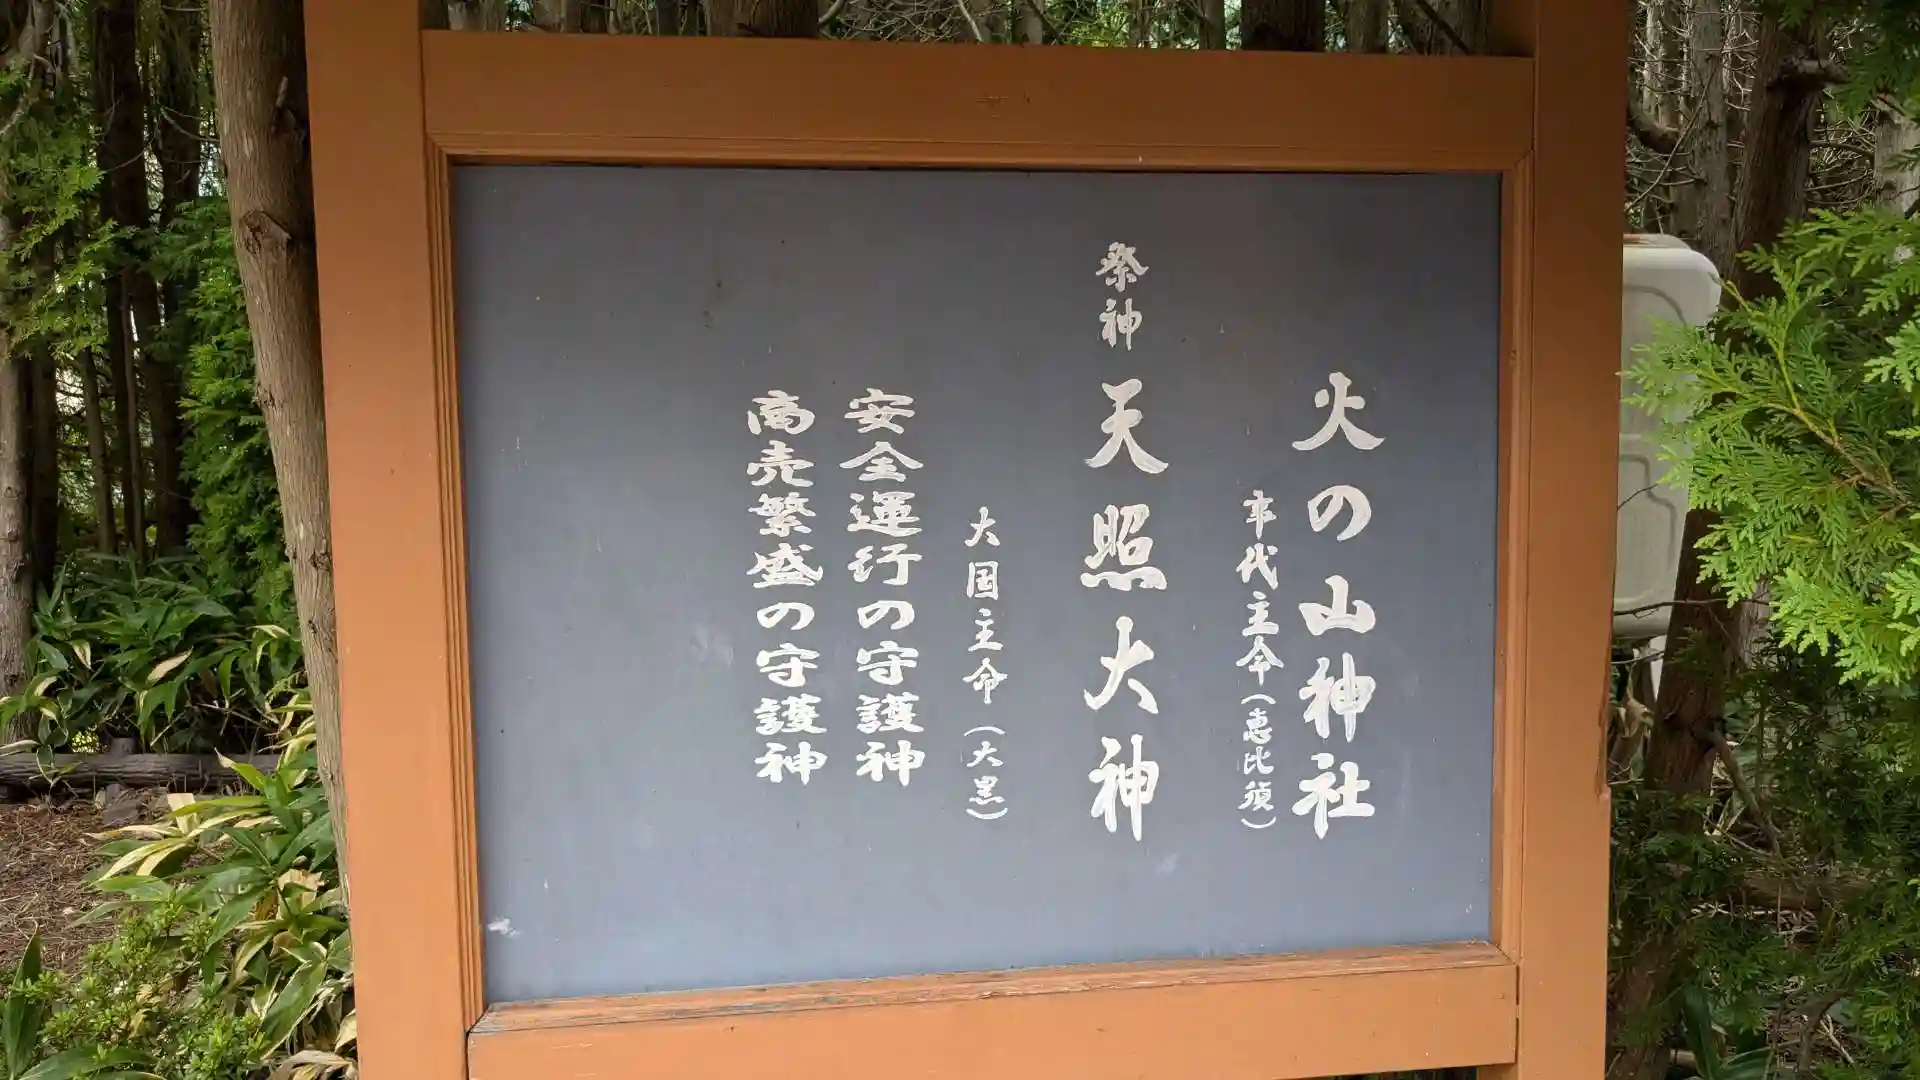 火の山神社
事代主命（恵比須）
祭神 天照大神
大国主命（大黒）
安全運行の守護神
商売繁盛の守護神